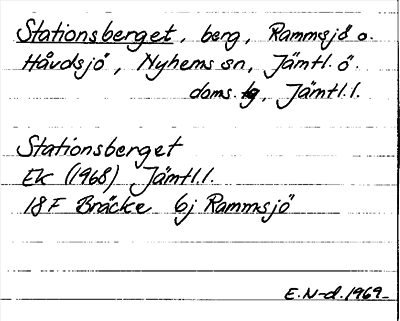 Stationsberget, berg, Rammsjö o.
Håvdsjö, Nyhems sn, Jämtl. ö.
doms. tg, Jämtl. l.
Stationsberget
Ek (1968) Jämtl. l.
18 F Bräcke 6j Rammsjö
E. N-d. 1969